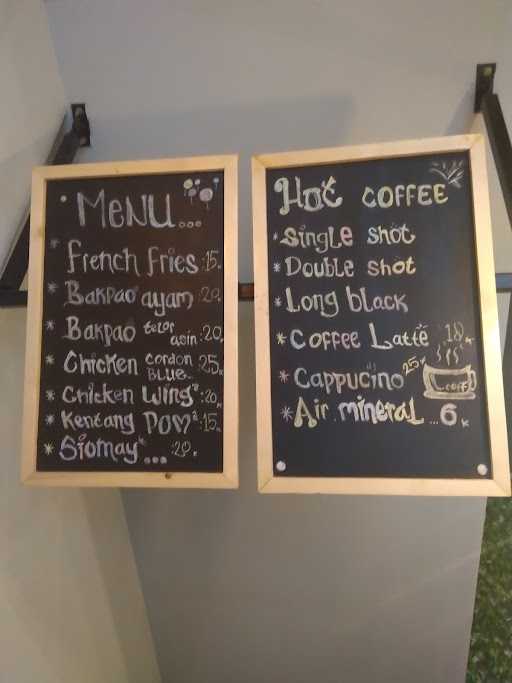 MENU...
French Fries :15.
Bakpao ayam :20.
Bakpao telor asin :20.
Chicken cordon BLUE :25k
Chicken Wing² :20
Kentang POM² :15k
Siomay... :20.
Hot COFFEE
Single shot
Double shot
Long black
Coffee Latte 18k
Cappucino 25k
Coffe
Air mineral ...6k